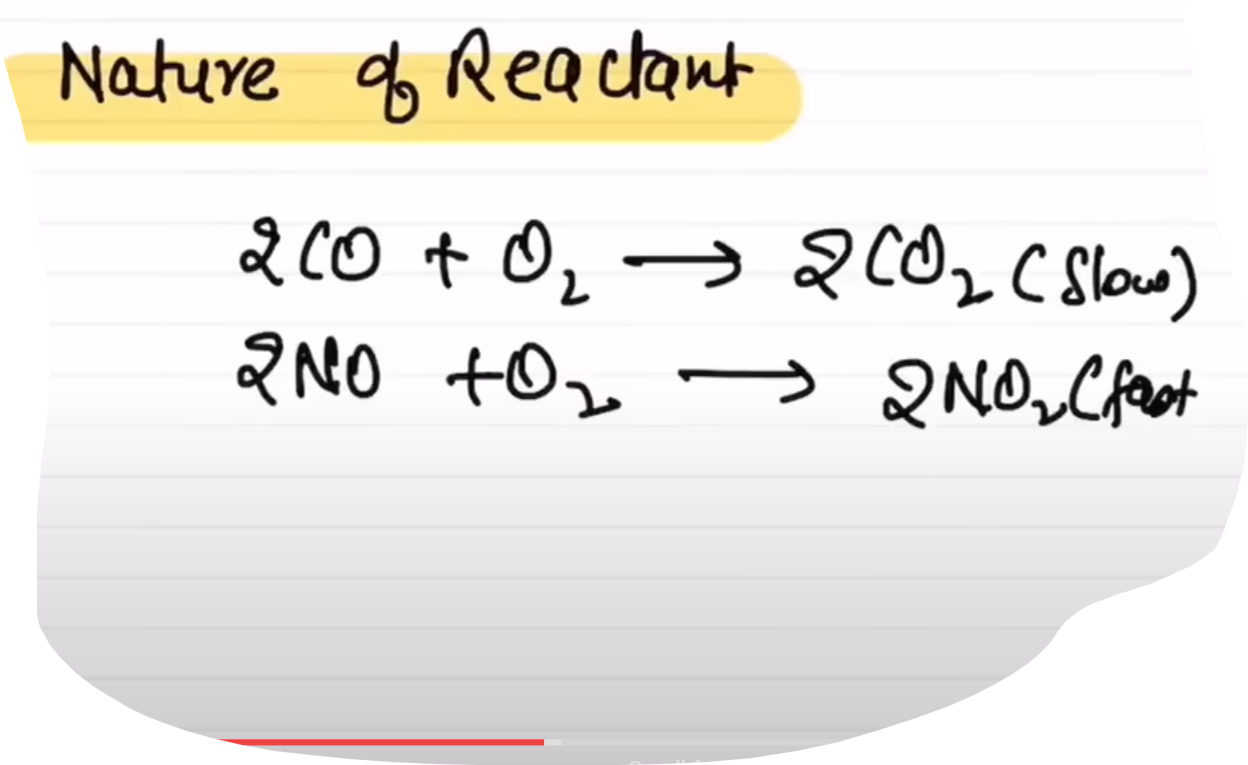 Nature of Reactant
2CO + O₂ → 2CO₂ (Slow)
2NO + O₂ → 2NO₂ (fast